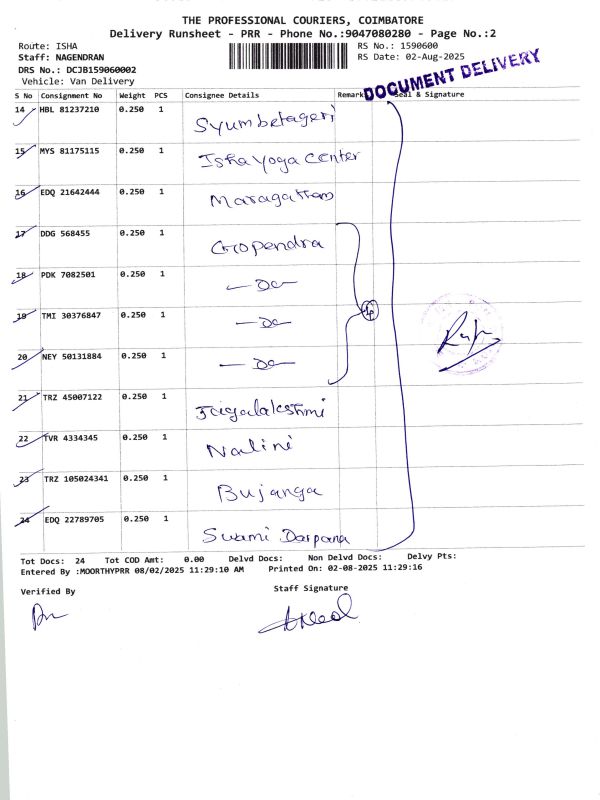 THE PROFESSIONAL COURIERS, COIMBATORE
Delivery Runsheet - PRR - Phone No.:9047080280 - Page No.:2
Route: ISHA
Staff: NAGENDRAN
DRS No.: DCJB159060002
Vehicle: Van Delivery
RS No.: 1590600
RS Date: 02-Aug-2025
DOCUMENT DELIVERY
S No Consignment No Weight PCS Consignee Details Remark Seal & Signature
14 HBL 81237210 0.250 1 Syumbetageri
15 MYS 81175115 0.250 1 Isha Yoga Center
16 EDQ 21642444 0.250 1 Maragattam
17 DDG 568455 0.250 1 Gropendra
18 PDK 7082501 0.250 1 — Do —
19 TMI 30376847 0.250 1 — Do —
20 NEY 50131884 0.250 1 — Do —
4
21 TRZ 45007122 0.250 1
22 TVR 4334345 0.250 1 Nalini
23 TRZ 105024341 0.250 1 Bujanga
24 EDQ 22789705 0.250 1 Swami Darpana
Tot Docs: 24 Tot COD Amt: 0.00 Delvd Docs: Non Delvd Docs: Delvy Pts:
Entered By :MOORTHYPRR 08/02/2025 11:29:10 AM Printed On: 02-08-2025 11:29:16
Verified By
Staff Signature